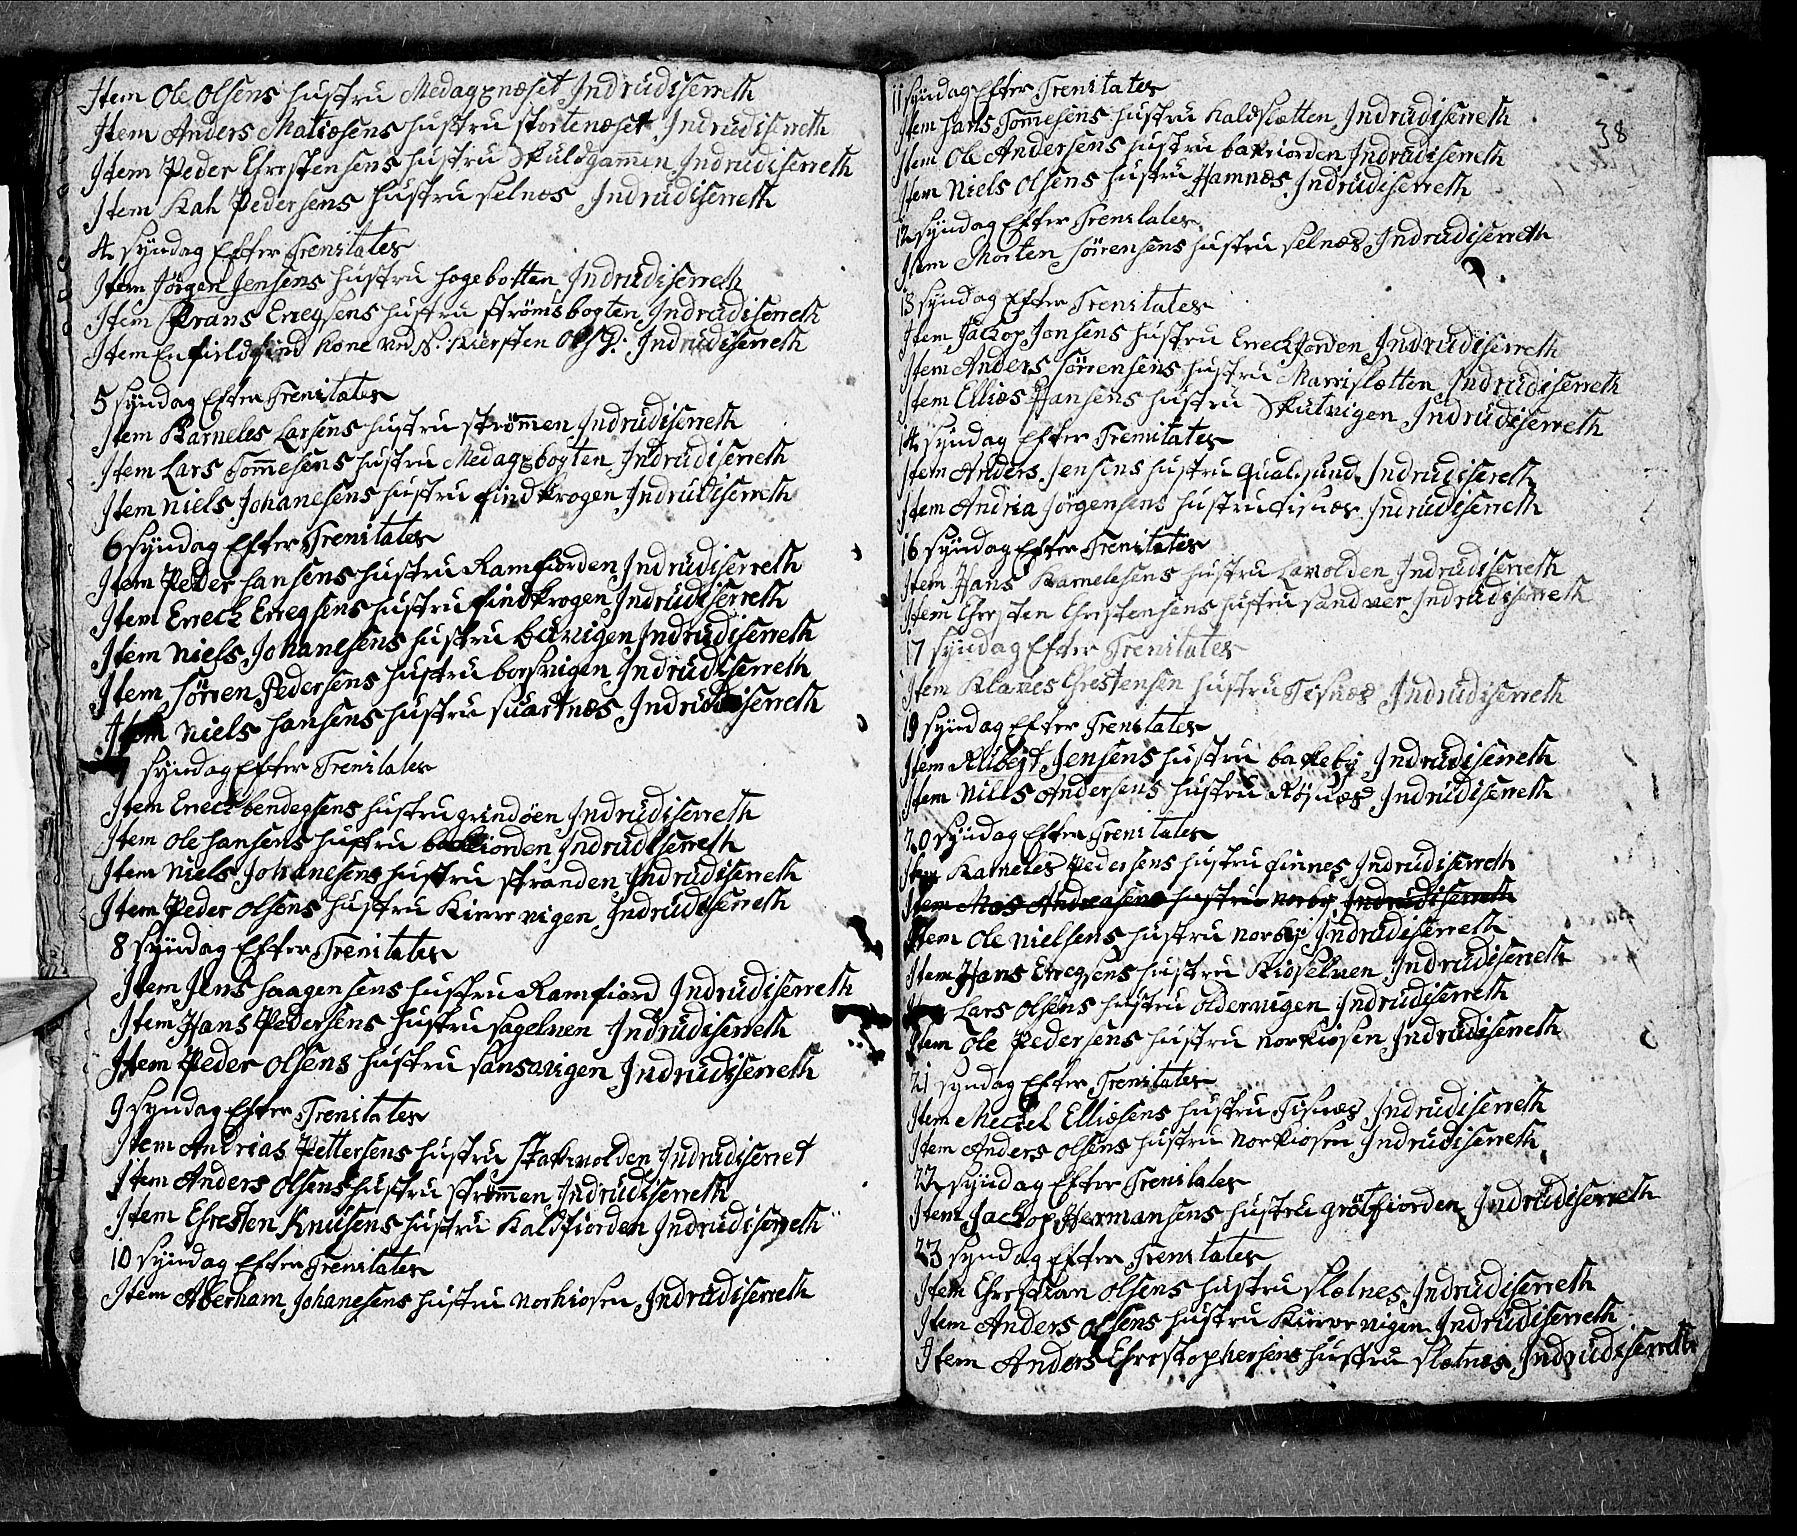 Item Ole Olsens hustru Medagznæset Indrüdiserreth
Item Anders Matiæsens hustru stortenæset Indrüdiserreth
Item Peder Chrestensens hustru Skuldgammen Indrüdiserreth
Item Kah Pedersens hustru selnes Indrüdiserreth
4 Syndag Efter Trenitates
Item Jörgen Jensens hustru hogebotten Indrüdiserreth
Item Frans Erregsens hustru strömsbogten Indrüdiserreth
Item En fieldfind kone Kiersten Ols D: Indrüdiserreth
5 Syndag Efter Trenitates
Item Karneles Larsens hustru strömmen Indrüdiserreth
Item Lars Tommesens hustru Medagzbogten Indrüdiserreth
Item Niels Johanesens hustru findkrogen Indrüdiserreth
6 Syndag Efter Trenitates
Item Peder hansens hustru Ramfiorden Indrüdiserreth
Item Erreck Erregsens hustru findkrogen Indrüdiserreth
Item Niels Johanesens hustru buvigen Indrüdiserreth
Item Sörren Pedersens hustru borsvigen Indrüdiserreth
Item Niels hansens hustru suartnæs Indrüdiserreth
7 Syndag Efter Trenitates
Item Erreck bendegsens hustru grindöen Indrüdiserreth
Item Ole hansens hustru balkiorden Indrüdiserreth
Item Niels Johanesens hustru stranden Indrüdiserreth
Item Peder Olsens hustru Kierrvigen Indrüdiserreth
8 Syndag Efter Trenitates
Item Jens haagensens hustru Ramfiord Indrüdiserreth
Item Hans Pedersens hustru sagelven Indrüdiserreth
Item Peder Olsens hustru sansvigen Indrüdiserreth
9 Syndag Efter Trenitates
Item Andrias Pettersens hustru Skatvolden Indrüdiserret
Item Anders Olsens hustru strömmen Indrüdiserreth
Item Chresten Knüsens hustru Kaldfiorden Indrüdiserreth
10 Syndag Efter Trenitates
Item Aberham Johanesens hustru Norkiosen Indrüdiserreth
38
11 Syndag Efter Trenitates
Item Hans Tommesens hustru Kaldslætten Indrüdiserreth
Item Ole Andersens hustru bakiorden Indrüdiserreth
Item Niels Olsens hustru Hamnæs Indrüdiserreth
12 Syndag Efter Trenitates
Item Morten Sörrensens hustru selnæs Indrüdiserreth
13 Syndag Efter Trenitates
Item Jackop Jonsens hustru Erreckfjorden Indrüdiserreth
Item Anders Sörrensens hustru Marrislætten Indrüdiserreth
Item Elliæs Hansens hustru Skutvigen Indrüdiserreth
14 Syndag Efter Trenitates
Item Anders Jensens hustru Qualsund Indrüdisereth
Item Andria Jörgensens hustru tisnæs Indrüdiserreth
16 Syndag Efter Trenitates
Item Hans Karnelesens hustru Lavolden Indrüdiserreth
Item Chresten Chrestensens hustru sandver Indrüdiserreth
17 Syndag Efter Trenitates
Item Klames Chrestensen hustru Tisnæs Indrüdiserreth
19 Syndag Efter Trenitates
Item Allbegt Jensens hustru bakeby Indrüdiserreth
Item Niels Andersens hustru Rösnæs Indrüdiserreth
20 Syndag Efter Trenitates
Item Karneles Pedersens hustru finnes Indrüdiserreth
Item Mas Andreasens hustru Norby Indrüdiserreth
Item Ole Nielsens hustru Norby Indrüdiserreth
Item Hans Erregsens hustru Kioselven Indrüdiserreth
Lars Olsens hustru Oldervigen Indrüdiserreth
Item Ole Pedersens hustru Norkiosen Indrüdiserreth
21 Syndag Efter Trenitates
Item Meckel Elliæsens hustru Tisnæs Indrüdiserreth
Item Anders Olsens hustru Norkiosen Indrüdiserreth
22 Syndag Efter Trenitates
Item Jackop Hermansens hustru grötfiorden Indrüdiserreth
23 Syndag Efter Trenitates
Item Chrestian Olsens hustru slætnes Indrüdiserreth
Item Anders Olsens hustru Kierrvigen Indrüdiserreth
Item Anders Chrestophersens hustru slætnes Indrüdiserreth